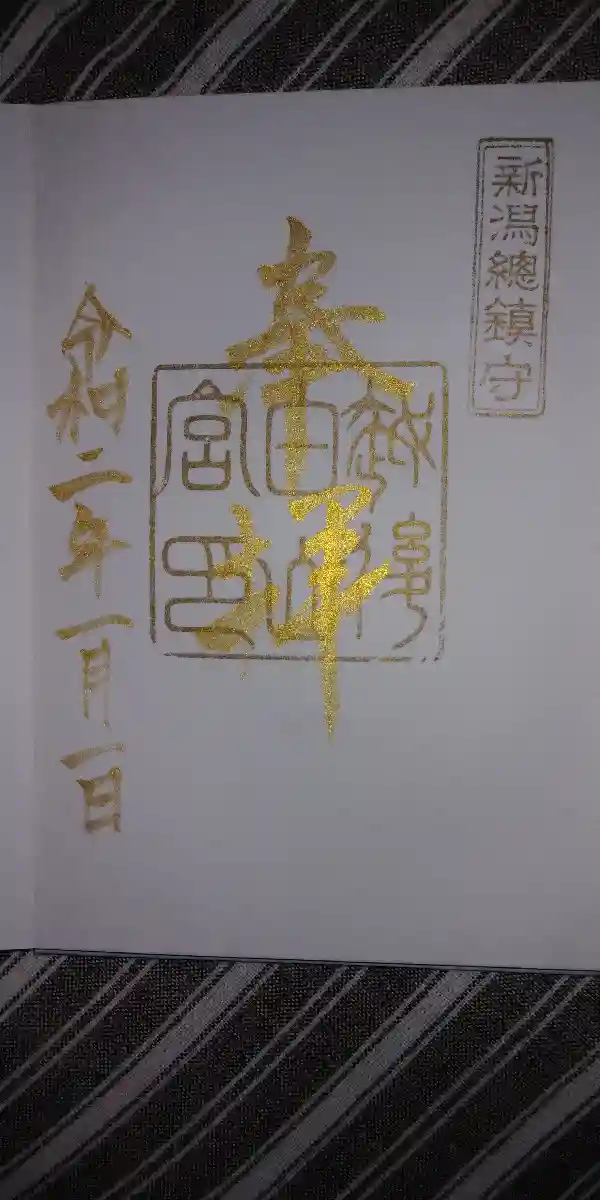 新潟總鎮守
奉拝
越後
白山
宮印
令和二年一月一日